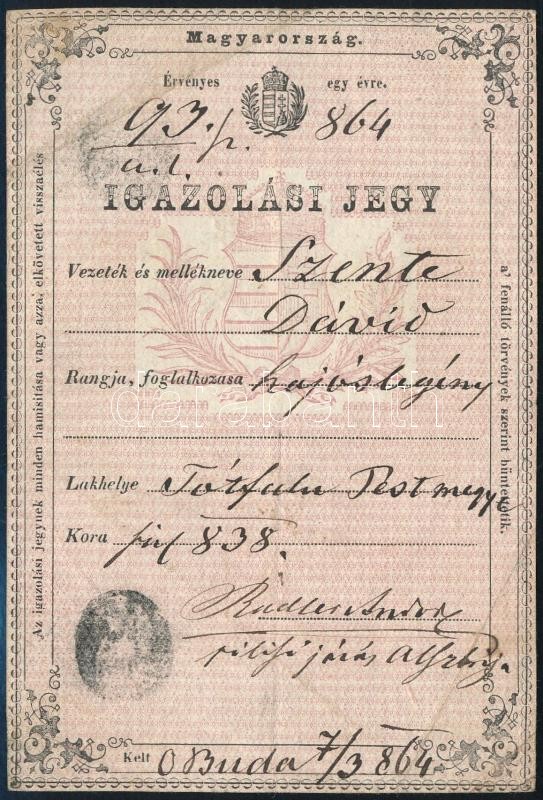 Magyarország.
Érvényes egy évre.
93. 864
IGAZOLÁSI JEGY
Vezeték és mellékneve Szente
Dávid
Rangja, foglalkozasa hajóslegény
Lakhelye Tótfalu Pest megye
Kora 838.
Radler Andor
pilisi járás
Kelt O Buda 7/3 864
Az igazolási jegynek minden hamisittása vagy azza, elkövetett visszaélés
a' fenálló törvények szerint büntettetik.
darabanth